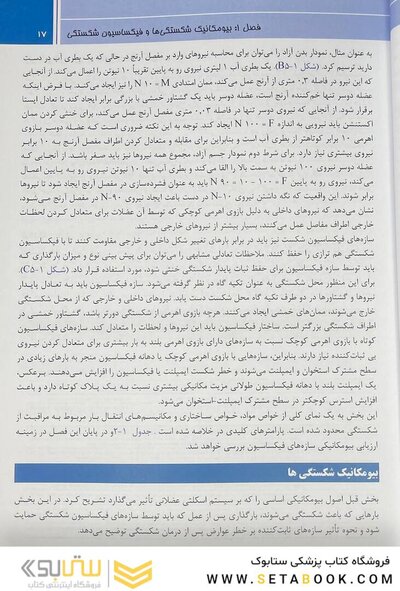 فصل ۱: بیومکانیک شکستگی‌ها و فیکساسیون شکستگی
۱۷
به عنوان مثال، نمودار بدن آزاد را می‌توان برای محاسبه نیروهای وارد بر مفصل آرنج در حالی که یک بطری آب در دست
دارید ترسیم کرد. (شکل B۵-۱). یک بطری آب ۱ لیتری نیروی رو به پایین تقریباً ۱۰ نیوتن را اعمال می‌کند. از آنجایی
که این نیرو در فاصله ۰.۳ متری از آرنج عمل می‌کند، ممان امتدادی N ۱۰ = M را نیز ایجاد می‌کند. با فرض اینکه
عضله دوسر تنها خم‌کننده آرنج است، عضله دوسر باید یک گشتاور خمشی با بزرگی برابر ایجاد کند تا تعادل ایستا
برقرار شود. از آنجایی که نیروی دوسر تنها در فاصله ۰.۰۳ متری مفصل آرنج عمل می‌کند، برای خنثی کردن ممان
اکستنشن باید نیرویی به اندازه N ۱۰۰ = F ایجاد کند. توجه به این نکته ضروری است که عضله دوسر بازوی
اهرمی ۱۰ برابر کوتاهتر از بطری آب است و بنابراین برای مقابله و متعادل کردن اطراف مفصل آرنج به ۱۰ برابر
نیروی بیشتری نیاز دارد. برای شرط دوم نمودار جسم آزاد، مجموع همه نیروها نیز باید صفر باشد. از آنجایی که
عضله دوسر نیروی ۱۰۰ نیوتن به سمت بالا را القا می‌کند و بطری آب تنها ۱۰ نیوتن نیروی رو به پایین اعمال
می‌کند، نیروی رو به پایین N ۹۰ = ۱۰ – ۱۰۰ = F باید به عنوان فشرده‌سازی در مفصل آرنج ایجاد شود تا نیروها
برابر شوند. این واقعیت که نگه داشتن نیروی N-۱۰ در دست باعث ایجاد نیروی N-۹۰ در مفصل آرنج می‌شود،
نشان می‌دهد که نیروهای داخلی به دلیل بازوی اهرمی کوچکی که توسط آن عضلات برای متعادل کردن لحظات
خارجی اطراف مفاصل عمل می‌کنند، بسیار بیشتر از نیروهای خارجی هستند.
سازه‌های فیکساسیون شکست نیز باید در برابر بارهای تغییر شکل داخلی و خارجی مقاومت کنند تا با فیکساسیون
شکستگی هم ترازی را حفظ کنند. ملاحظات تعادلی مشابهی را می‌توان برای پیش بینی نوع و میزان بارگذاری که
باید توسط سازه فیکساسیون برای حفظ ثبات پایدار شکستگی خنثی شود، مورد استفاده قرار داد. (شکل C۵-۱)
برای این منظور محل شکستگی به عنوان تکیه گاه در نظر گرفته می‌شود. سازه فیکساسیون باید به تعادل پایدار
نیروها و گشتاورها در دو طرف تکیه گاه محل شکست دست یابد. نیروهای داخلی و خارجی که از محل شکستگی
خارج می‌شوند، ممان‌های خمشی ایجاد می‌کنند. هرچه بازوی اهرمی از شکستگی دورتر باشد، گشتاور خمشی در
اطراف شکستگی بزرگتر است. ساختار فیکساسیون باید این نیروها و لحظات را متعادل کند. سازه‌های فیکساسیون
کوتاه با بازوی اهرمی کوچک نسبت به سازه‌های دارای بازوی اهرمی بلند به بار بیشتری برای متعادل کردن نیروی
بی ثبات‌کننده نیاز دارند. بنابراین، سازه‌هایی با بازوی اهرمی کوچک یا دهانه فیکساسیون منجر به بارهای زیادی در
سطح مشترک استخوان و ایمپلنت می‌شوند و خطر شکست ایمپلنت یا فیکساسیون را افزایش می‌دهند. برعکس،
یک ایمپلنت بلند با دهانه فیکساسیون طولانی مزیت مکانیکی بیشتری نسبت به یک پلاک کوتاه دارد و باعث
افزایش استرس کوچکتر در سطح مشترک ایمپلنت-استخوان می‌شود.
این بخش به یک نمای کلی از خواص مواد، خواص ساختاری و مکانیسم‌های انتقال بار مربوط به مراقبت از
شکستگی محدود شده است. پارامترهای کلیدی در خلاصه شده است . جدول ۱-۲و در پایان این فصل در زمینه
ارزیابی بیومکانیکی سازه‌های فیکساسیون بررسی خواهد شد.
بیومکانیک شکستگی ها
بخش قبل اصول بیومکانیکی اساسی را که بر سیستم اسکلتی عضلانی تأثیر می‌گذارد تشریح کرد. در این بخش
بارهایی که باعث شکستگی می‌شوند، بارگذاری پس از عمل که باید توسط سازه‌های فیکساسیون شکستگی حمایت
شود و نحوه تأثیر سازه‌های ثابت‌کننده بر خطر عوارض پس از درمان شکستگی توضیح می‌دهد.
فروشگاه کتاب پزشکی ستابوک
WWW.SETABOOK.COM
ستابوک
فروشگاه اینترنتی کتاب